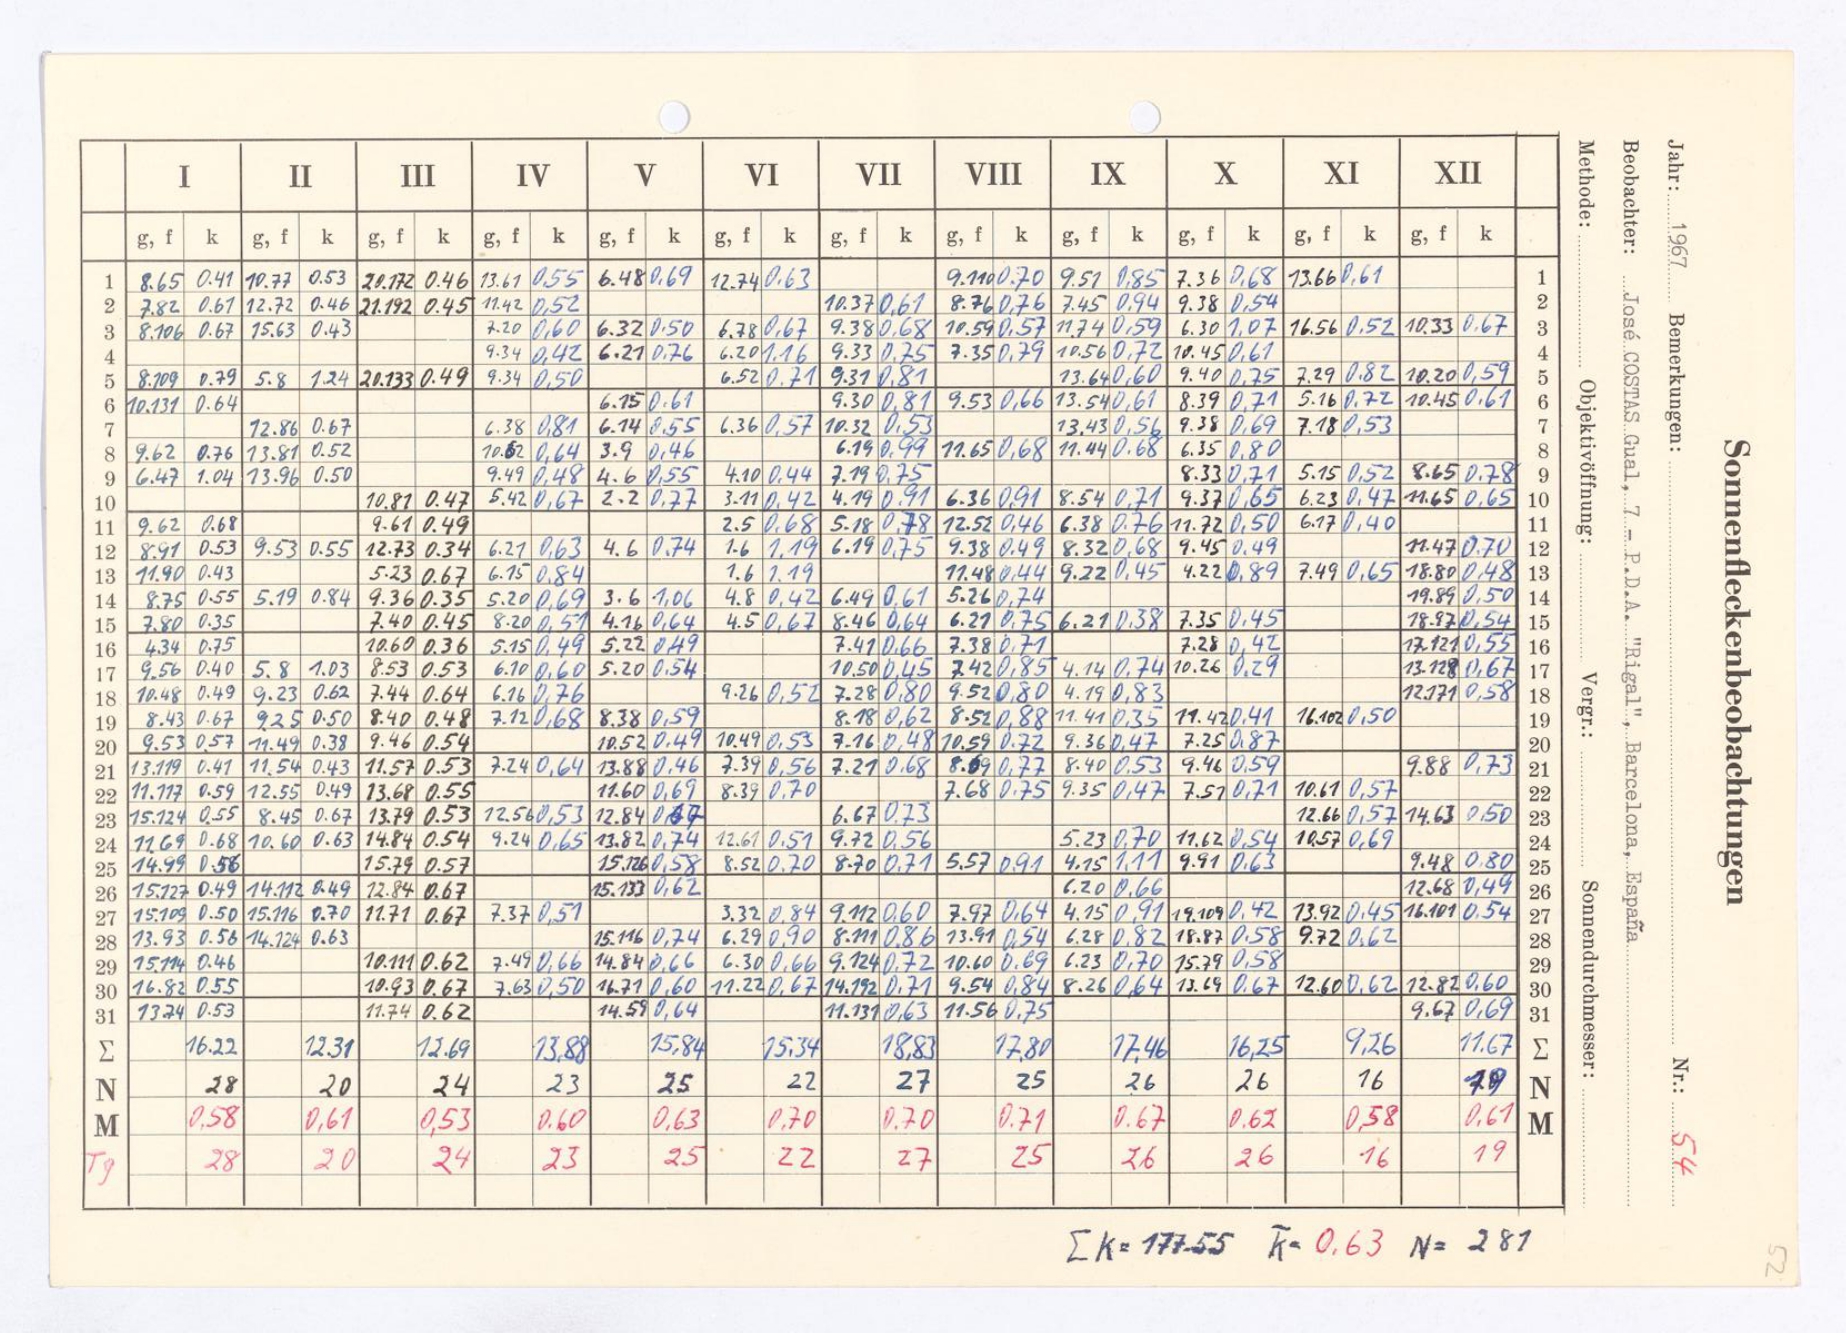 Sonnenfleckenbeobachtungen
Jahr: 1967 Bemerkungen: Nr.: 54
Beobachter: José COSTAS Gual, 7 - P.D.A. "Rigal", Barcelona, España
Methode: Objektivöffnung: Vergr.: Sonnendurchmesser:
I II III IV V VI VII VIII IX X XI XII
g, f k g, f k g, f k g, f k g, f k g, f k g, f k g, f k g, f k g, f k g, f k g, f k
1 8.65 0.41 10.77 0.53 20.172 0.46 13.61 0,55 6.48 0,69 12.74 0,63 9.110 0.70 9.51 0,85 7.36 0,68 13.66 0,61 1
2 7.82 0.61 12.72 0.46 21.192 0.45 11.42 0,52 10.37 0,61 8.76 0,76 7.45 0,94 9.38 0,54 2
3 8.106 0.67 15.63 0.43 7.20 0,60 6.32 0.50 6.78 0,67 9.38 0,68 10.59 0,57 11.74 0,59 6.30 1,07 16.56 0,52 10.33 0.67 3
4 9.34 0,42 6.21 0,76 6.20 1,16 9.33 0,75 7.35 0,79 10.56 0,72 10.45 0,61 4
5 8.109 0.79 5.8 1.24 20.133 0.49 9.34 0,50 6.52 0.71 9.31 0,81 13.64 0,60 9.40 0,75 7.29 0.82 10.20 0,59 5
6 10.131 0.64 6.15 0.61 9.30 0,81 9.53 0,66 13.54 0,61 8.39 0,71 5.16 0,72 10.45 0,61 6
7 12.86 0.67 6.38 0,81 6.14 0,55 6.36 0,57 10.32 0,53 13.43 0,56 9.38 0,69 7.18 0,53 7
8 9.62 0.76 13.81 0.52 0,64 3.9 0,46 6.19 0,99 11.65 0,68 11.44 0.68 6.35 0,80 8
9 6.47 1.04 13.96 0.50 9.49 0,48 4.6 0,55 4.10 0,44 7.19 0,75 8.33 0,71 5.15 0,52 8.65 0,78 9
10 10.81 0.47 5.42 0,67 2.2 0,77 3.11 0,42 4.19 0,91 6.36 0,91 8.54 0,71 9.37 0,65 6.23 0,47 11.65 0,65 10
11 9.62 0.68 9.61 0.49 2.5 0,68 5.18 0,78 12.52 0,46 6.38 0.76 11.72 0,50 6.17 0,40 11
12 8.91 0.53 9.53 0.55 12.73 0.34 6.21 0,63 4.6 0,74 1.6 1,19 6.19 0,75 9.38 0,49 8.32 0,68 9.45 0.49 11.47 0.70 12
13 11.90 0.43 5.23 0.67 6.15 0,84 1.6 1.19 11.48 0,44 9.22 0,45 4.22 0,89 7.49 0,65 18.80 0,48 13
14 8.75 0.55 5.19 0.84 9.36 0.35 5.20 0,69 3.6 1,06 4.8 0,42 6.49 0,61 5.26 0,74 19.89 0,50 14
15 7.80 0.35 7.40 0.45 8.20 0,51 4.16 0,64 4.5 0,67 8.46 0,64 6.21 0,75 6.21 0,38 7.35 0,45 18.97 0,54 15
16 4.34 0.75 10.60 0.36 5.15 0,49 5.22 0,49 7.41 0,66 7.38 0,71 7.28 0,42 17.121 0,55 16
17 9.56 0.40 5.8 1.03 8.53 0.53 6.10 0,60 5.20 0,54 10.50 0,45 7.42 0,85 4.14 0,74 10.26 0,29 13.128 0,67 17
18 10.48 0.49 9.23 0.62 7.44 0.64 6.16 0,76 9.26 0,52 7.28 0,80 9.52 0,80 4.19 0,83 12.171 0,58 18
19 8.43 0.67 9.25 0.50 8.40 0.48 7.12 0,68 8.38 0,59 8.18 0,62 8.52 0,88 11.41 0,35 11.42 0,41 16.102 0,50 19
20 9.53 0,57 11.49 0.38 9.46 0.54 10.52 0,49 10.49 0,53 7.16 0,48 10.59 0.72 9.36 0,47 7.25 0,87 20
21 13.119 0.41 11.54 0.43 11.57 0.53 7.24 0,64 13.88 0,46 7.39 0,56 7.21 0.68 0,77 8.40 0,53 9.46 0,59 9.88 0,73 21
22 11.117 0.59 12.55 0.49 13.68 0.55 11.60 0,69 8.39 0,70 7.68 0.75 9.35 0,47 7.51 0,71 10.61 0,57 22
23 15.124 0,55 8.45 0.67 13.79 0.53 12.56 0,53 12.84 6.67 0,73 12.66 0,57 14.63 0,50 23
24 11.69 0.68 10.60 0.63 14.84 0.54 9.24 0,65 13.82 0,74 12.61 0,51 9.72 0,56 5.23 0,70 11.62 0,54 10.57 0,69 24
25 14.99 0.56 15.79 0.57 15.126 0,58 8.52 0,70 8.70 0,71 5.57 0,91 4.15 1,11 9.91 0,63 9.48 0,80 25
26 15.127 0.49 14.112 0.49 12.84 0.67 15.133 0,62 6.20 0,66 12.68 0,49 26
27 15.109 0.50 15.116 0.70 11.71 0.67 7.37 0,51 3.32 0,84 9.112 0.60 7.97 0,64 4.15 0,91 19.109 0,42 13.92 0,45 16.101 0,54 27
28 13.93 0.56 14.124 0.63 15.116 0,74 6.29 0,90 8.111 0,86 13.91 0,54 6.28 0,82 18.87 0,58 9.72 0,62 28
29 15.114 0.46 10.111 0.62 7.49 0,66 14.84 0,66 6.30 0,66 9.124 0,72 10.60 0.69 6.23 0,70 15.79 0,58 29
30 16.82 0.55 10.93 0.67 7.63 0,50 16.71 0,60 11.22 0,67 14.192 0.71 9.54 0,84 8.26 0,64 13.69 0.67 12.60 0,62 12.82 0,60 30
31 13.74 0.53 11.74 0.62 14.59 0,64 11.131 0,63 11.56 0,75 9.67 0,69 31
Σ 16.22 12.31 12.69 13,88 15,84 15.34 18,83 17,80 17,46 16,25 9,26 11.67 Σ
N 28 20 24 23 25 22 27 25 26 26 16 19 N
M 0,58 0,61 0,53 0.60 0,63 0,70 0.70 0.71 0.67 0.62 0,58 0,61 M
Tg 28 20 24 23 25 22 27 25 26 26 16 19
Σ K = 177.55 k̄ = 0.63 N = 281
52